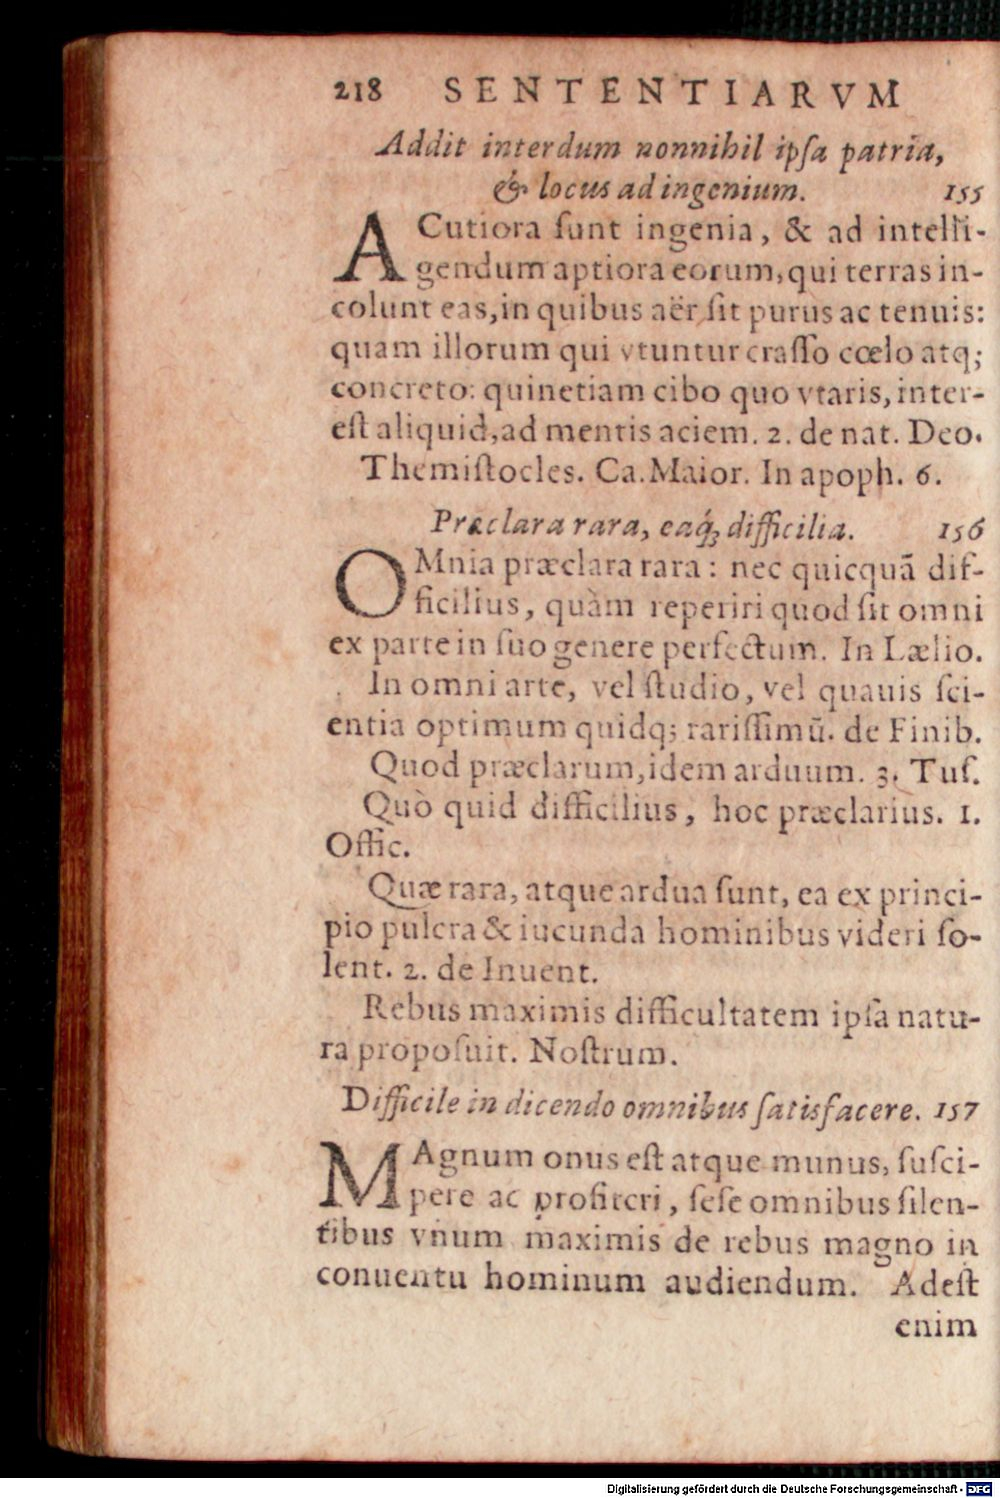 218 SENTENTIARVM
Addit interdum nonnihil ipſa patria,
& locus ad ingenium. 155
ACutiora ſunt ingenia, & ad intelli-
gendum aptiora eorum, qui terras in-
colunt eas, in quibus aër ſit purus ac tenuis:
quam illorum qui vtuntur craſſo cœlo atq;
concreto: quinetiam cibo quo vtaris, inter-
eſt aliquid, ad mentis aciem. 2. de nat. Deo.
Themiſtocles. Ca. Maior. In apoph. 6.
Præclara rara, eaq́; difficilia. 156
OMnia præclara rara: nec quicquā dif-
ficilius, quàm reperiri quod ſit omni
ex parte in ſuo genere perfectum. In Lælio.
In omni arte, vel ſtudio, vel quauis ſci-
entia optimum quidq; rariſſimū. de Finib.
Quod præclarum, idem arduum. 3. Tuſ.
Quò quid difficilius, hoc præclarius. 1.
Offic.
Quæ rara, atque ardua ſunt, ea ex princi-
pio pulcra & iucunda hominibus videri ſo-
lent. 2. de Inuent.
Rebus maximis difficultatem ipſa natu-
ra propoſuit. Noſtrum.
Difficile in dicendo omnibus ſatisfacere. 157
MAgnum onus eſt atque munus, ſuſci-
pere ac profiteri, ſeſe omnibus ſilen-
tibus vnum maximis de rebus magno in
conuentu hominum audiendum. Adeſt
enim
Digitalisierung gefördert durch die Deutsche Forschungsgemeinschaft - DFG